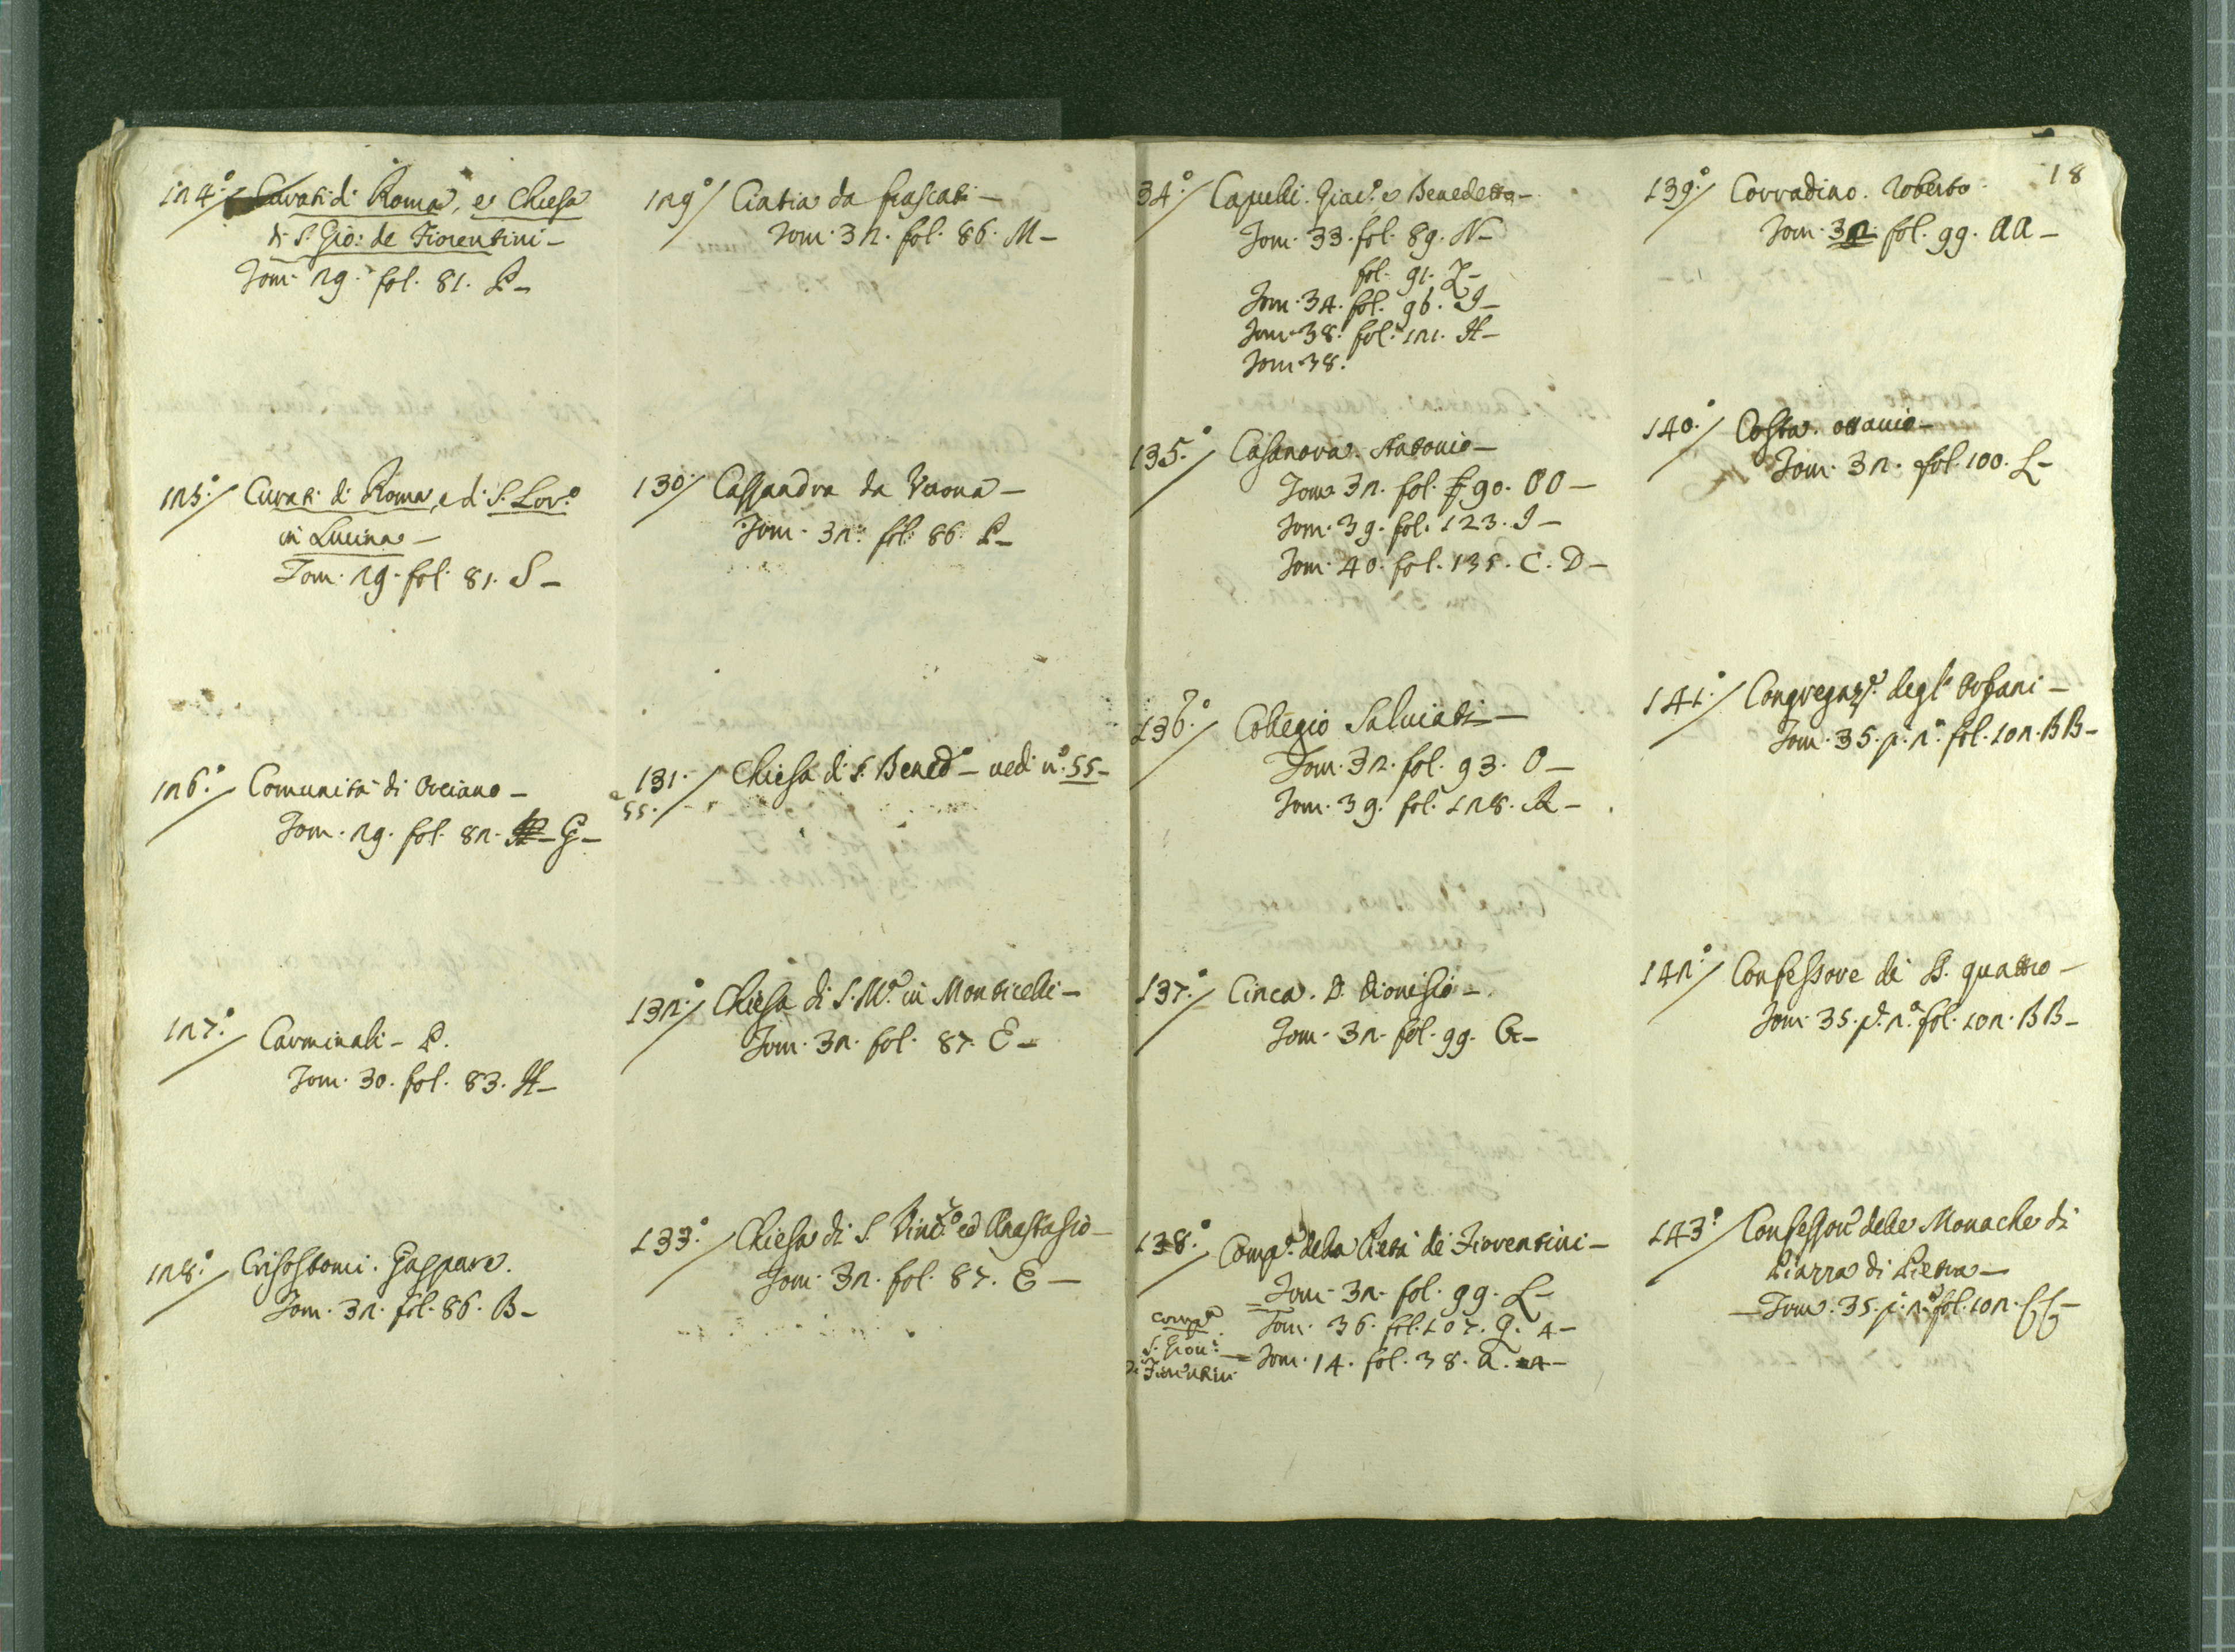 124.° Curati di Roma, e Chiesa
di S. Gio: de Fiorentini –
Tom. 29. fol. 81. P –
125.° Curati di Roma, e di S. Lor.°
in Lucina –
Tom. 29. fol. 81. S –
126.° Comunità di Orciano –
Tom. 29. fol. 82. G –
127.° Carminali – P.
Tom. 30. fol. 83. H –
128.° Crisostomi. Gaspare.
Tom. 32. fol. 86. B –
129.° Ciatia da frascati –
Tom. 32. fol. 86. M –
130.° Cassandra da Verona –
Tom. 32. fol. 86. P –
131. Chiesa di S. Bened.° – vedi n.° 55 –
e 55.
132.° Chiesa di S. M.ª in Monticelli –
Tom. 32. fol. 87. E –
133.° Chiesa di S. Vinc.° ed Anastasio –
Tom. 32. fol. 87. E –
18
34.° Capelli. Giac.° e Benedetto –
Tom. 33. fol. 89. N –
fol. 91. Z –
Tom. 34. fol. 96. I –
Tom. 38. fol. 121. H –
Tom. 38.
135.° Casanova. Antonio –
Tom. 32. fol. 90. OO –
Tom. 39. fol. 123. I –
Tom. 40. fol. 135. C. D –
136.° Collegio Salviati –
Tom. 32. fol. 93. O –
Tom. 39. fol. 128. R –
137.° Cinca. D. Dionisio –
Tom. 32. fol. 99. G –
138.° Comp.ª della Pietà de Fiorentini –
Tom. 32. fol. 99. L –
Tom. 36. fol. 107. Q. 4 –
comp.ª
S. Giov:
di Fiorentini – Tom. 14. fol. 38. a. 4 –
139.° Corradino. Roberto.
Tom. 32. fol. 99. AA –
140.° Costa. ottavio –
Tom. 32. fol. 100. L –
141.° Congregaz.e degl' Orfani –
Tom. 35. p. 2.ª fol. 102. BB –
142.° Confessore di SS. quattro –
Tom. 35. p. 2.ª fol. 102. BB –
143.° Confessori delle Monache di
Piazza di Pietra –
– Tom. 35. p. 2.ª fol. 102.